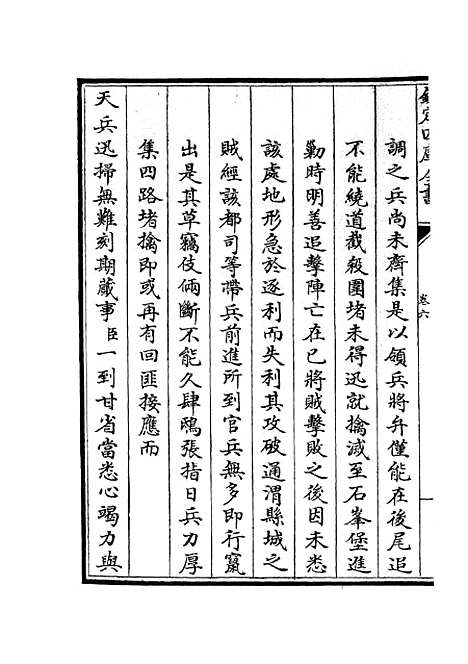 欽定四庫全書
卷六
調之兵尚未齊集是以領兵將弁僅能在後尾追
不能繞道截殺圍堵未得迅就擒滅至石峯堡進
勦時明善追擊陣亡在已將賊擊敗之後因未悉
該處地形急於逐利而失利其攻破通渭縣城之
賊經該都司等帶兵前進所到官兵無多即行竄
出是其草竊伎倆斷不能久肆鴟張指日兵力厚
集四路堵擒即或再有回匪接應而
天兵迅掃無難刻期蕆事臣一到甘省當悉心竭力與